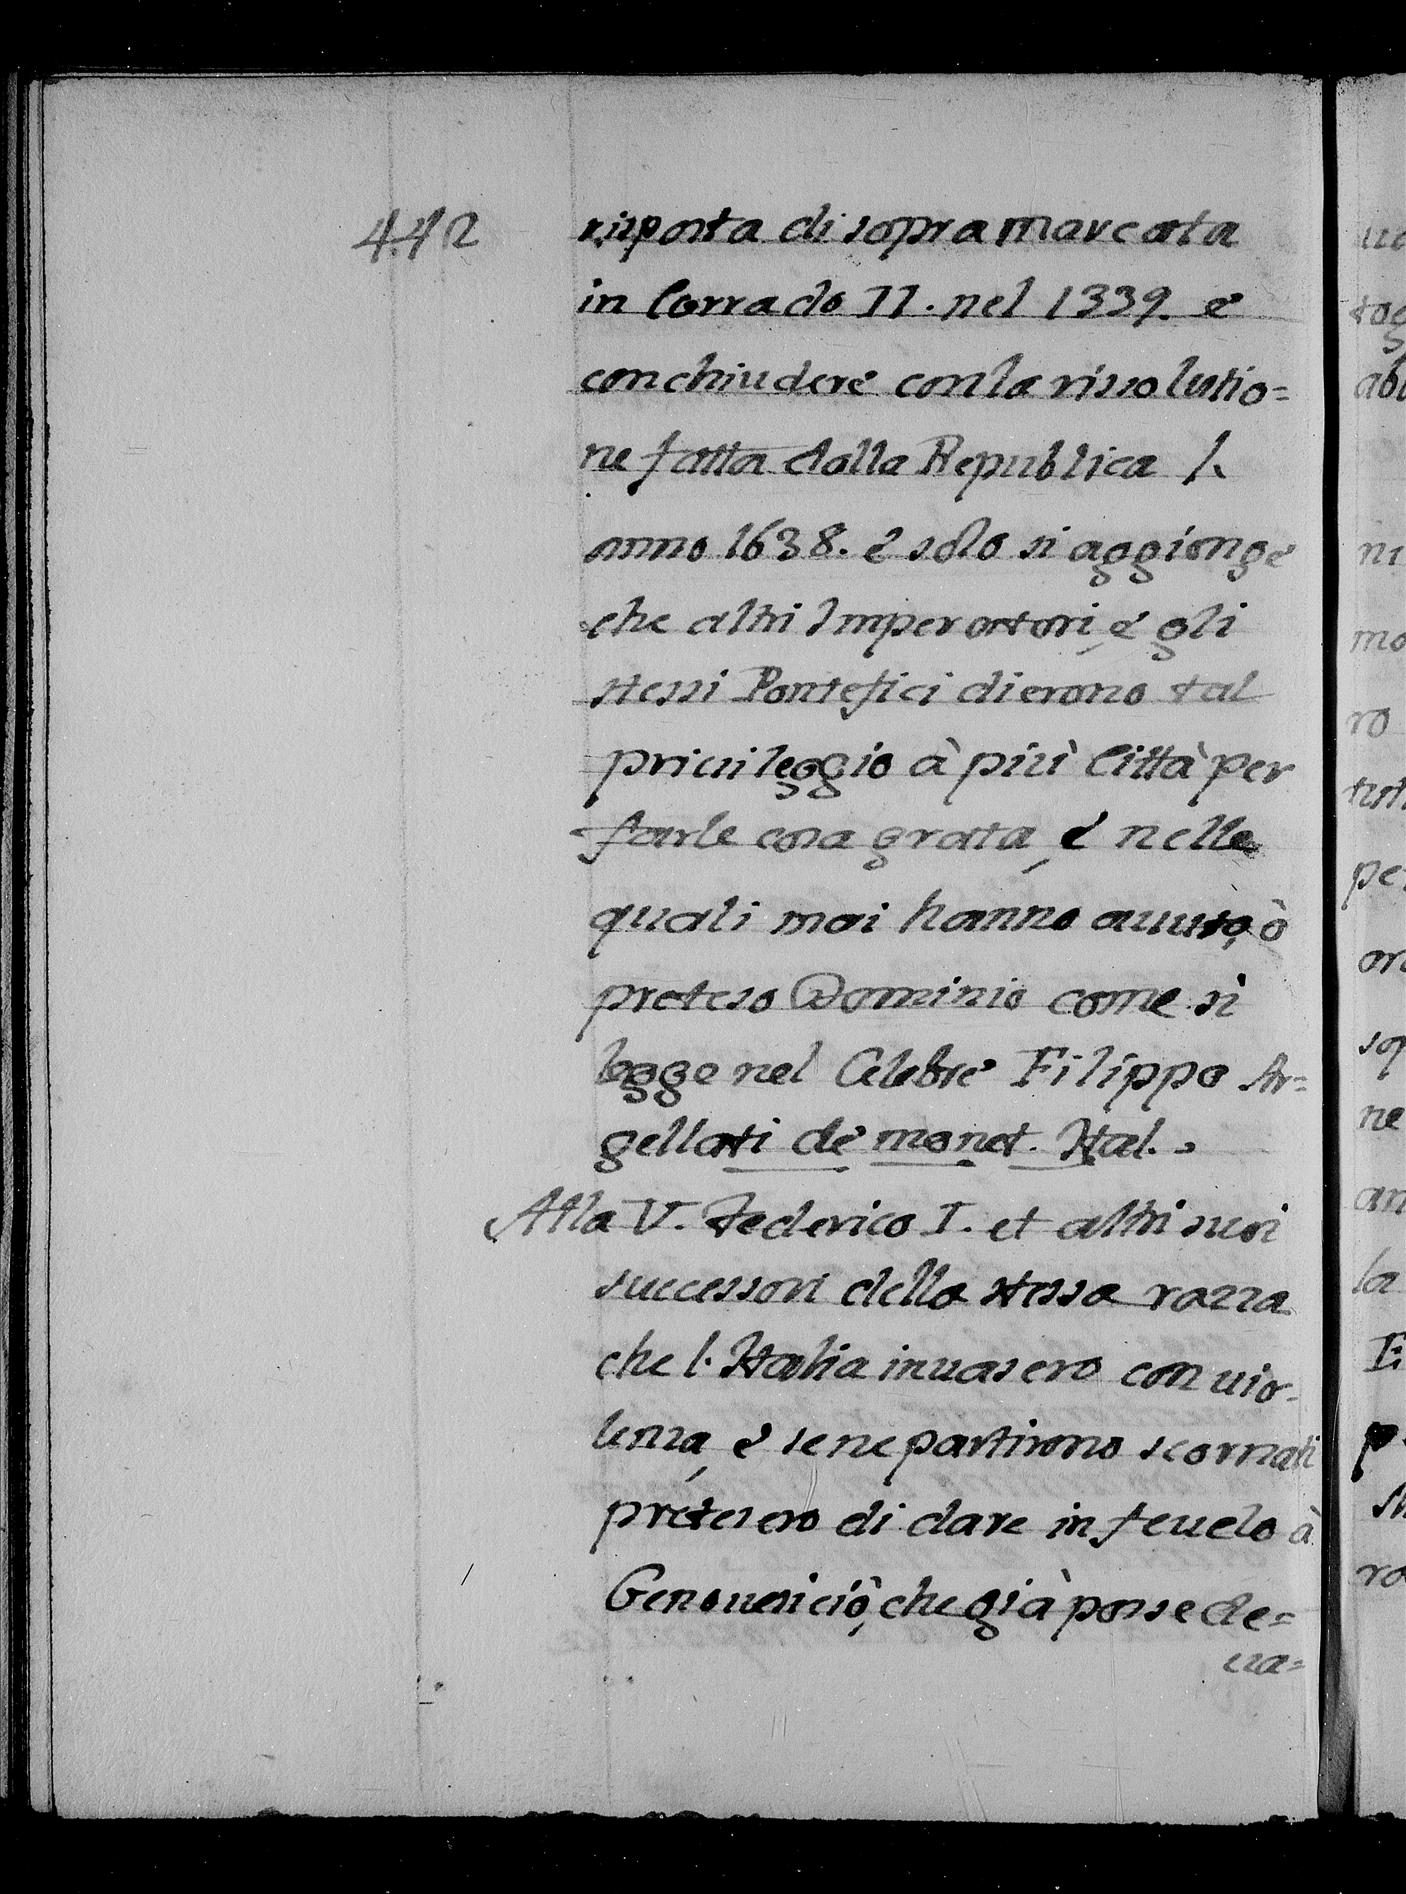 442
risposta di sopra marcata
in Corrado II. nel 1339. e
conchiudere con la rissolutio=
ne fatta dalla Republica l.
anno 1638. e solo si aggionge
che altri Imperatori, e gli
stessi Pontefici dierono tal
priuileggio à più Città per
farle cosa grata, e nelle
quali mai hanno auuto, ò
preteso Dominio come si
legge nel Celebre Filippo Ar=
gellati de monet. Ital.
Alla V. Federico I. et altri suoi
successori della stessa razza
che l. Italia inuasero con uio-
lenza, e se ne partirono scornati
pretesero di dare in feudo à
Genouesi ciò, che già possede=
ua=